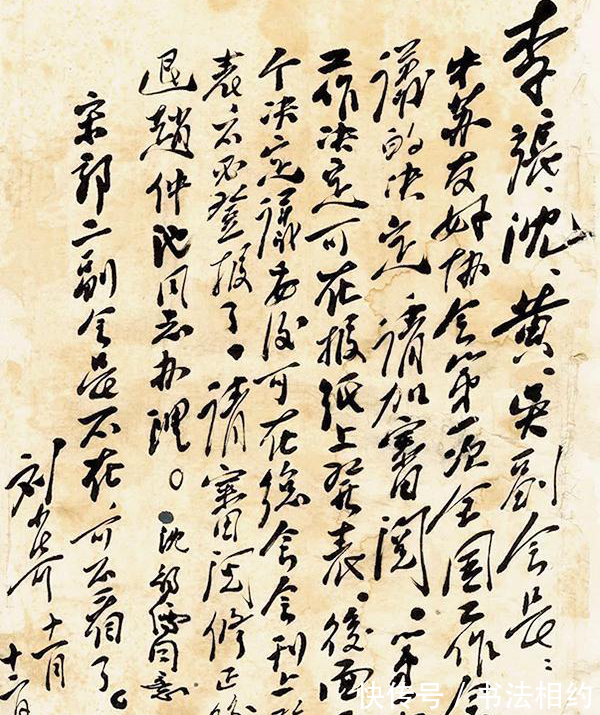 李、张、沈、黄、吴副会长：
中苏友好协会第一次全国工作会
议的决定，请加审阅。第
工作决定可在报纸上发表。後面
个决定议安后可在总会会刊上
表，不必登报了。请审阅修正後
退赵仲池同志办理。
沈钧儒同意
宋郭二副会长不在，可不看了。
刘少奇 十一月
十二月
快传号 / 书法相约